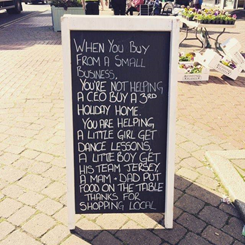 WHEN YOU BUY
FROM A SMALL
BUSINESS,
YOU'RE NOT HELPING
A CEO BUY A 3RD
HOLIDAY HOME.
YOU ARE HELPING
A LITTLE GIRL GET
DANCE LESSONS,
A LITTLE BOY GET
HIS TEAM JERSEY,
A MAM + DAD PUT
FOOD ON THE TABLE
THANKS FOR
SHOPPING LOCAL